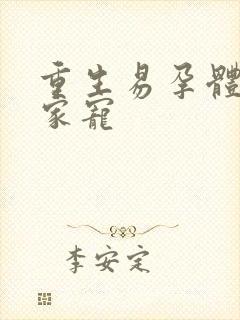 重生易孕體
家寵
李安定